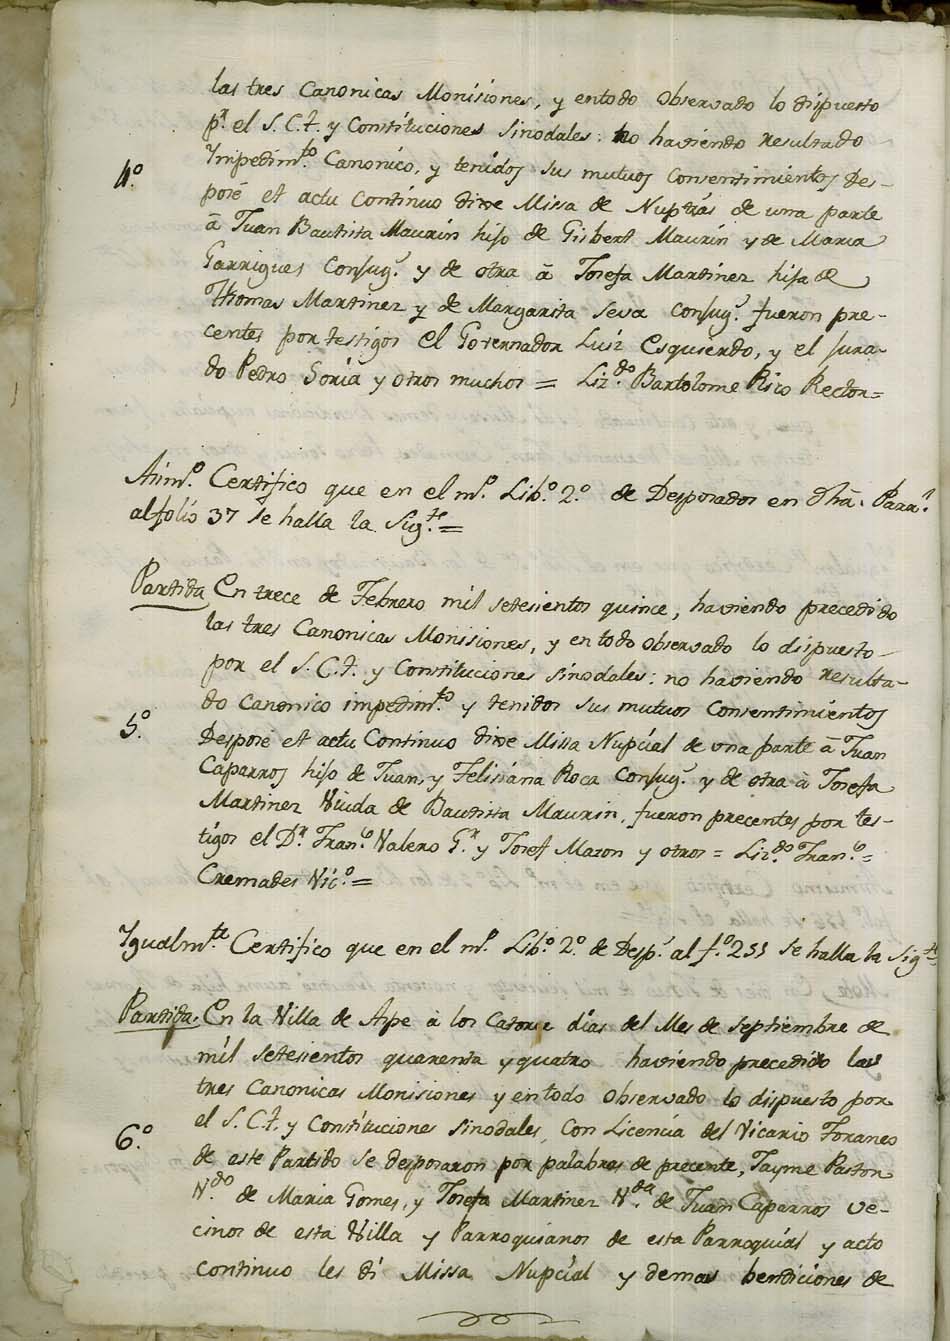 las tres Canonicas Monisiones, y entodo observado lo dispuesto
p.r el S.C.t. y Constituciones Sinodales: no haviendo resultado
Impedim.to Canonico, y tenidos sus mutuos Consentimientos Des-
4.o
posè et actu Continuo dixe Missa de Nupcias de una parte
â Juan Bautista Maurin hijo de Gisbert Maurin y de Maria
Garrigues Conjug.s y de otra â Josefa Martinez hija de
Thomas Martinez y de Margarita Seva Conjug.s fueron pre-
centes por testigos el Governador Luiz Esquierdo, y el Jura-
do Pedro Soria y otros muchos = Liz.do Bartolome Rico Rector=
Asim.o Certifico que en el m.o Lib.o 2.o de Desposados en dhã. Parr.l
al folio 37 se halla la Sig.te =
Partida En trece de Febrero mil setesientos quince, haviendo precedido
las tres Canonicas Monisiones, y en todo observado lo dispuesto-
por el S.C.t. y Constituciones Sinodales: no haviendo resulta-
do Canonico impedim.to y tenidos sus mutuos Consentimientos
5.o
Desposè et actu Continuo dixe Missa Nupcial de una parte â Juan
Caparros hijo de Juan, y Felisiana Roca Conjug.s y de otra à Josefa
Martinez Viuda de Bautista Maurin, fueron precentes por tes-
tigos el D.r Fran.co Valero G.r y Josef Mazon y otros = Liz.do Fran.co =
Cremades Vic.o =
Ygualm.te Certifico que en el m.o Lib.o 2.o de Desp.s al f.o 251 se halla la Sig.te
Partida. En la Villa de Aspe à los Catorze dias del Mes de Septiembre de
mil setesientos quarenta y quatro haviendo precedido las
tres Canonicas Monisiones y en todo observado lo dispuesto por
el S.C.t. y Constituciones Sinodales, Con Licencia del Vicario Foraneo
6.o
de este Partido se desposaron por palabras de precente, Jayme Pastor
V.do de Maria Gomes, y Josefa Martinez V.da de Juan Caparros ve-
cinos de esta Villa y Parroquianos de esta Parroquial y acto
continuo les di Missa Nupcial y demas bendiciones de